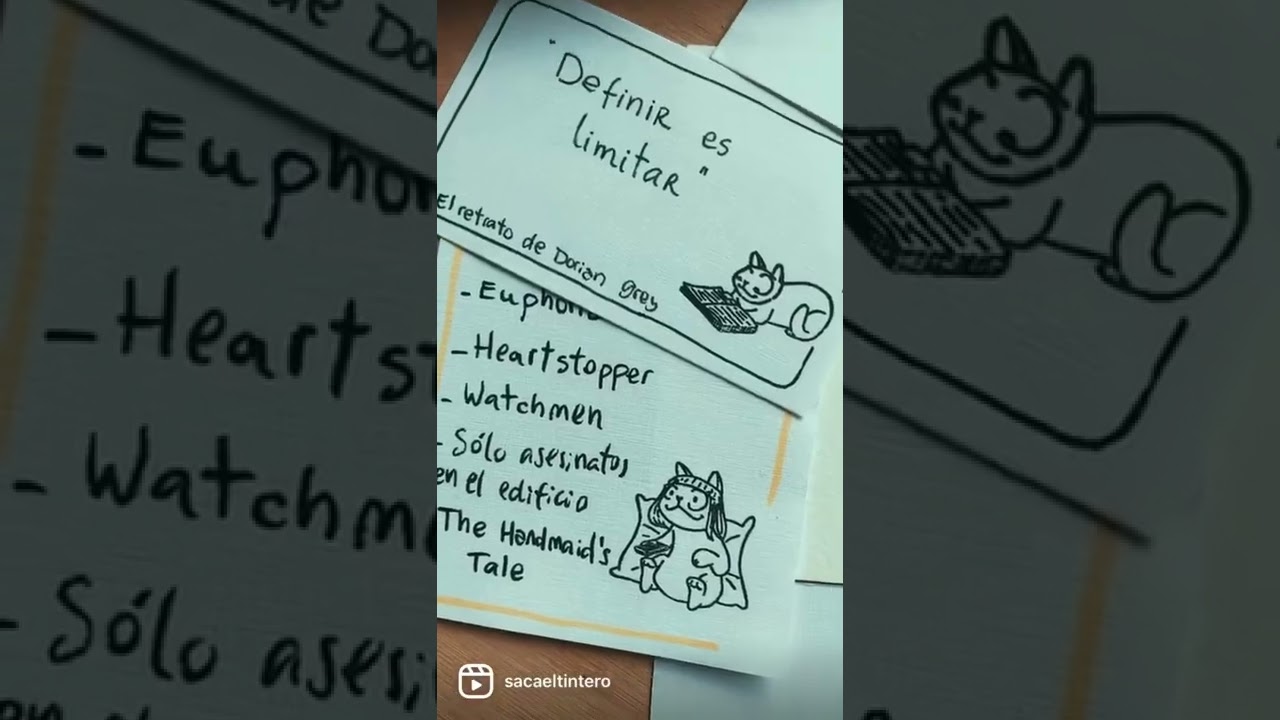 "Definir es
limitar"
El retrato de Dorian Grey
- Heartstopper
- Watchmen
- Sólo asesinatos
en el edificio
The Handmaid's
Tale
sacaeltintero